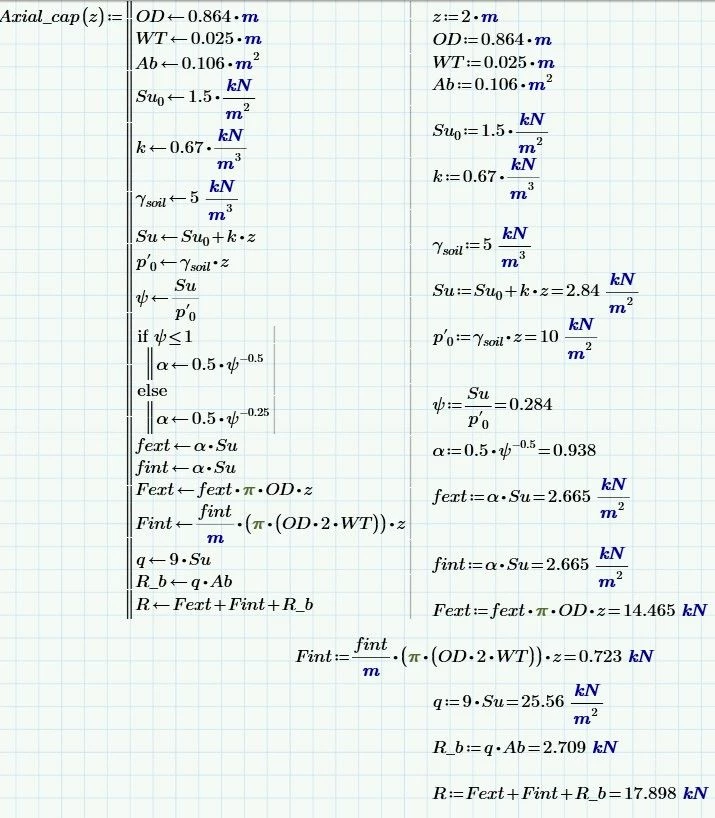 Axial_cap(z):= OD←0.864•m
WT←0.025•m
Ab←0.106•m²
Su₀←1.5•kN/m²
k←0.67•kN/m³
γsoil←5 kN/m³
Su←Su₀+k•z
p'₀←γsoil•z
ψ←Su/p'₀
if ψ≤1
α←0.5•ψ^−0.5
else
α←0.5•ψ^−0.25
fext←α•Su
fint←α•Su
Fext←fext•π•OD•z
Fint←fint/m•(π•(OD•2•WT))•z
q←9•Su
R_b←q•Ab
R←Fext+Fint+R_b
z:=2•m
OD:=0.864•m
WT:=0.025•m
Ab:=0.106•m²
Su₀:=1.5•kN/m²
k:=0.67•kN/m³
γsoil:=5 kN/m³
Su:=Su₀+k•z=2.84 kN/m²
p'₀:=γsoil•z=10 kN/m²
ψ:=Su/p'₀=0.284
α:=0.5•ψ^−0.5=0.938
fext:=α•Su=2.665 kN/m²
fint:=α•Su=2.665 kN/m²
Fext:=fext•π•OD•z=14.465 kN
Fint:=fint/m•(π•(OD•2•WT))•z=0.723 kN
q:=9•Su=25.56 kN/m²
R_b:=q•Ab=2.709 kN
R:=Fext+Fint+R_b=17.898 kN